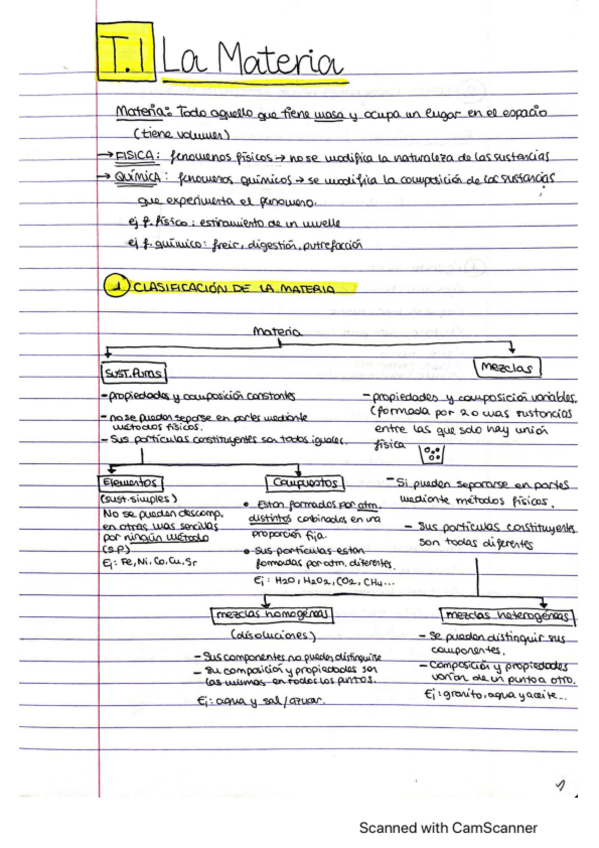 T.1 La Materia
Materia: Todo aquello que tiene masa y ocupa un lugar en el espacio
(tiene volumen)
→ FISICA: fenomenos físicos → no se modifica la naturaleza de las sustancias
→ QUÍMICA: fenomenos químicos → se modifica la composición de las sustancias
que experimenta el fenomeno.
ej f. físico: estiramiento de un muelle
ej f. químico: freir, digestión, putrefacción
1 CLASIFICACIÓN DE LA MATERIA
Materia
SUST. PURAS
- propiedades y composición constantes
- no se pueden separse en partes mediante
métodos físicos.
- Sus partículas constituyentes son todas iguales.
Mezclas
- propiedades y composición variables.
(formada por 2 o mas sustancias
entre las que solo hay unión
física
- Si pueden separarse en partes
mediante métodos físicos.
- Sus partículas constituyentes
son todas diferentes
Elementos
(sust. simples)
No se pueden descomp.
en otras mas sencillas
por ningún método
(S.P)
Ej: Fe, Ni, Co, Cu, Sr
Compuestos
• Estan formados por atm.
distintos combinados en una
proporción fija.
• Sus partículas estan
formadas por atm. diferentes.
Ej: H2O, H2O2, CO2, CH4...
mezclas homogéneas
(disoluciones)
- Sus componentes no pueden distinguirse
- Su composición y propiedades son
las mismas en todos los puntos.
Ej: agua y sal/azucar.
mezclas heterogéneas
- Se pueden distinguir sus
componentes.
- Composición y propiedades
varían de un punto a otro.
Ej: granito, agua y aceite...
1
Scanned with CamScanner